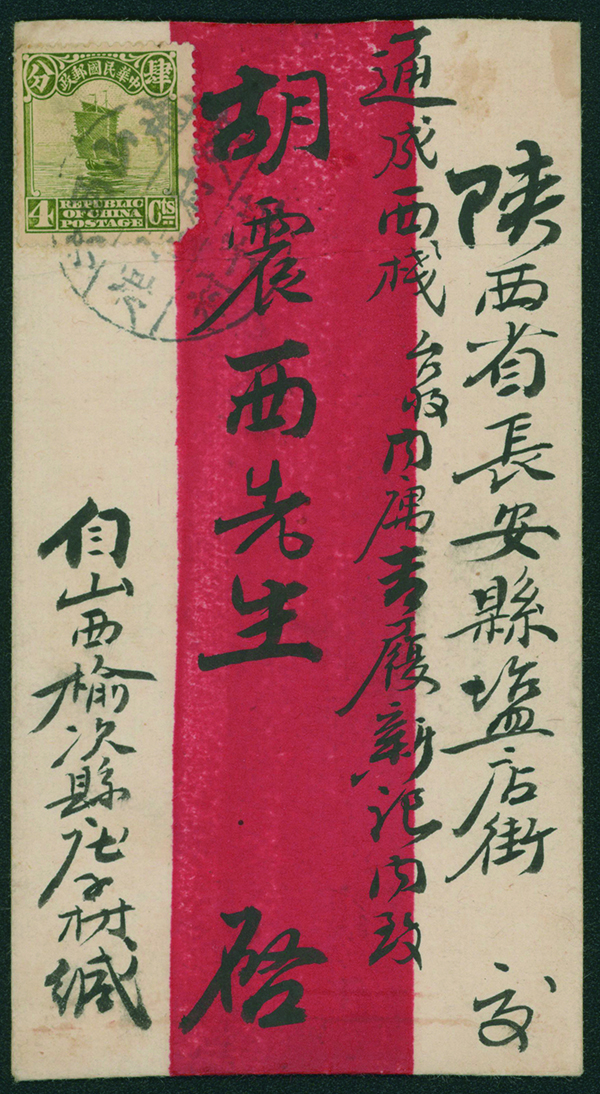 陕西省長安縣塩店街 交
通成西棧 台收内

吉履新記内政
胡震西先生 啓
自山西榆次縣庄子村緘
肆 中華民國郵政 分
4 REPUBLIC OF CHINA POSTAGE Cts